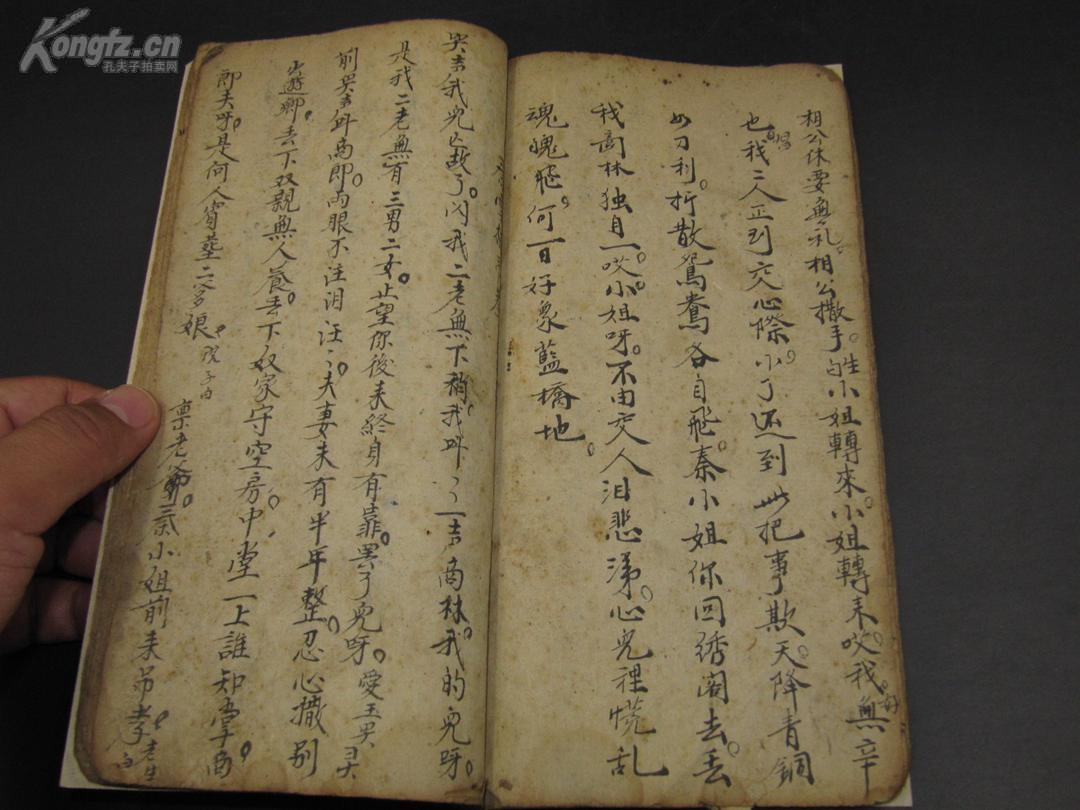 Kongfz.cn
孔夫子拍卖网
相公休要無礼。相公撒手。小姐轉來。小姐轉来。哎。我無辛
也我二人正到交心際。小了还到此把事了欺天。降青銅
如刀利。折散鴛鴦各自飛。秦小姐你回綉阁去。丢
我商林独自一哎。小姐呀。不由交人泪悲涕。心兒裡慌乱
魂魄飛。何一日好象藍橋地。
哭声我兒亡故了。闪我二老無下稍。我叫叫一声商林我的兒呀。
是我二老無有三男二女。止望你後来終身有靠。罢了兒呀。愛玉哭
前哭声年高郎。两眼不注泪汪汪。夫妻未有半年整。忍心撒别
丢下双親無人养。丢下奴家守空房。中堂一上誰知拿酒
郎夫呀。是何人爹娘。院子白
禀老爺。小姐前来弔孝。老生白